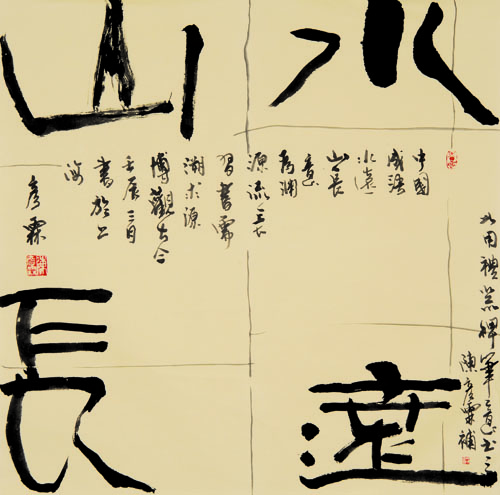 水
遠
山
長
中國
成語
水遠
山長
意
為淵
源流之長
習書需
溯求源
博觀古今
壬辰三月
書於上
海
彥霖
用禮器碑筆意書之
陳彥霖補